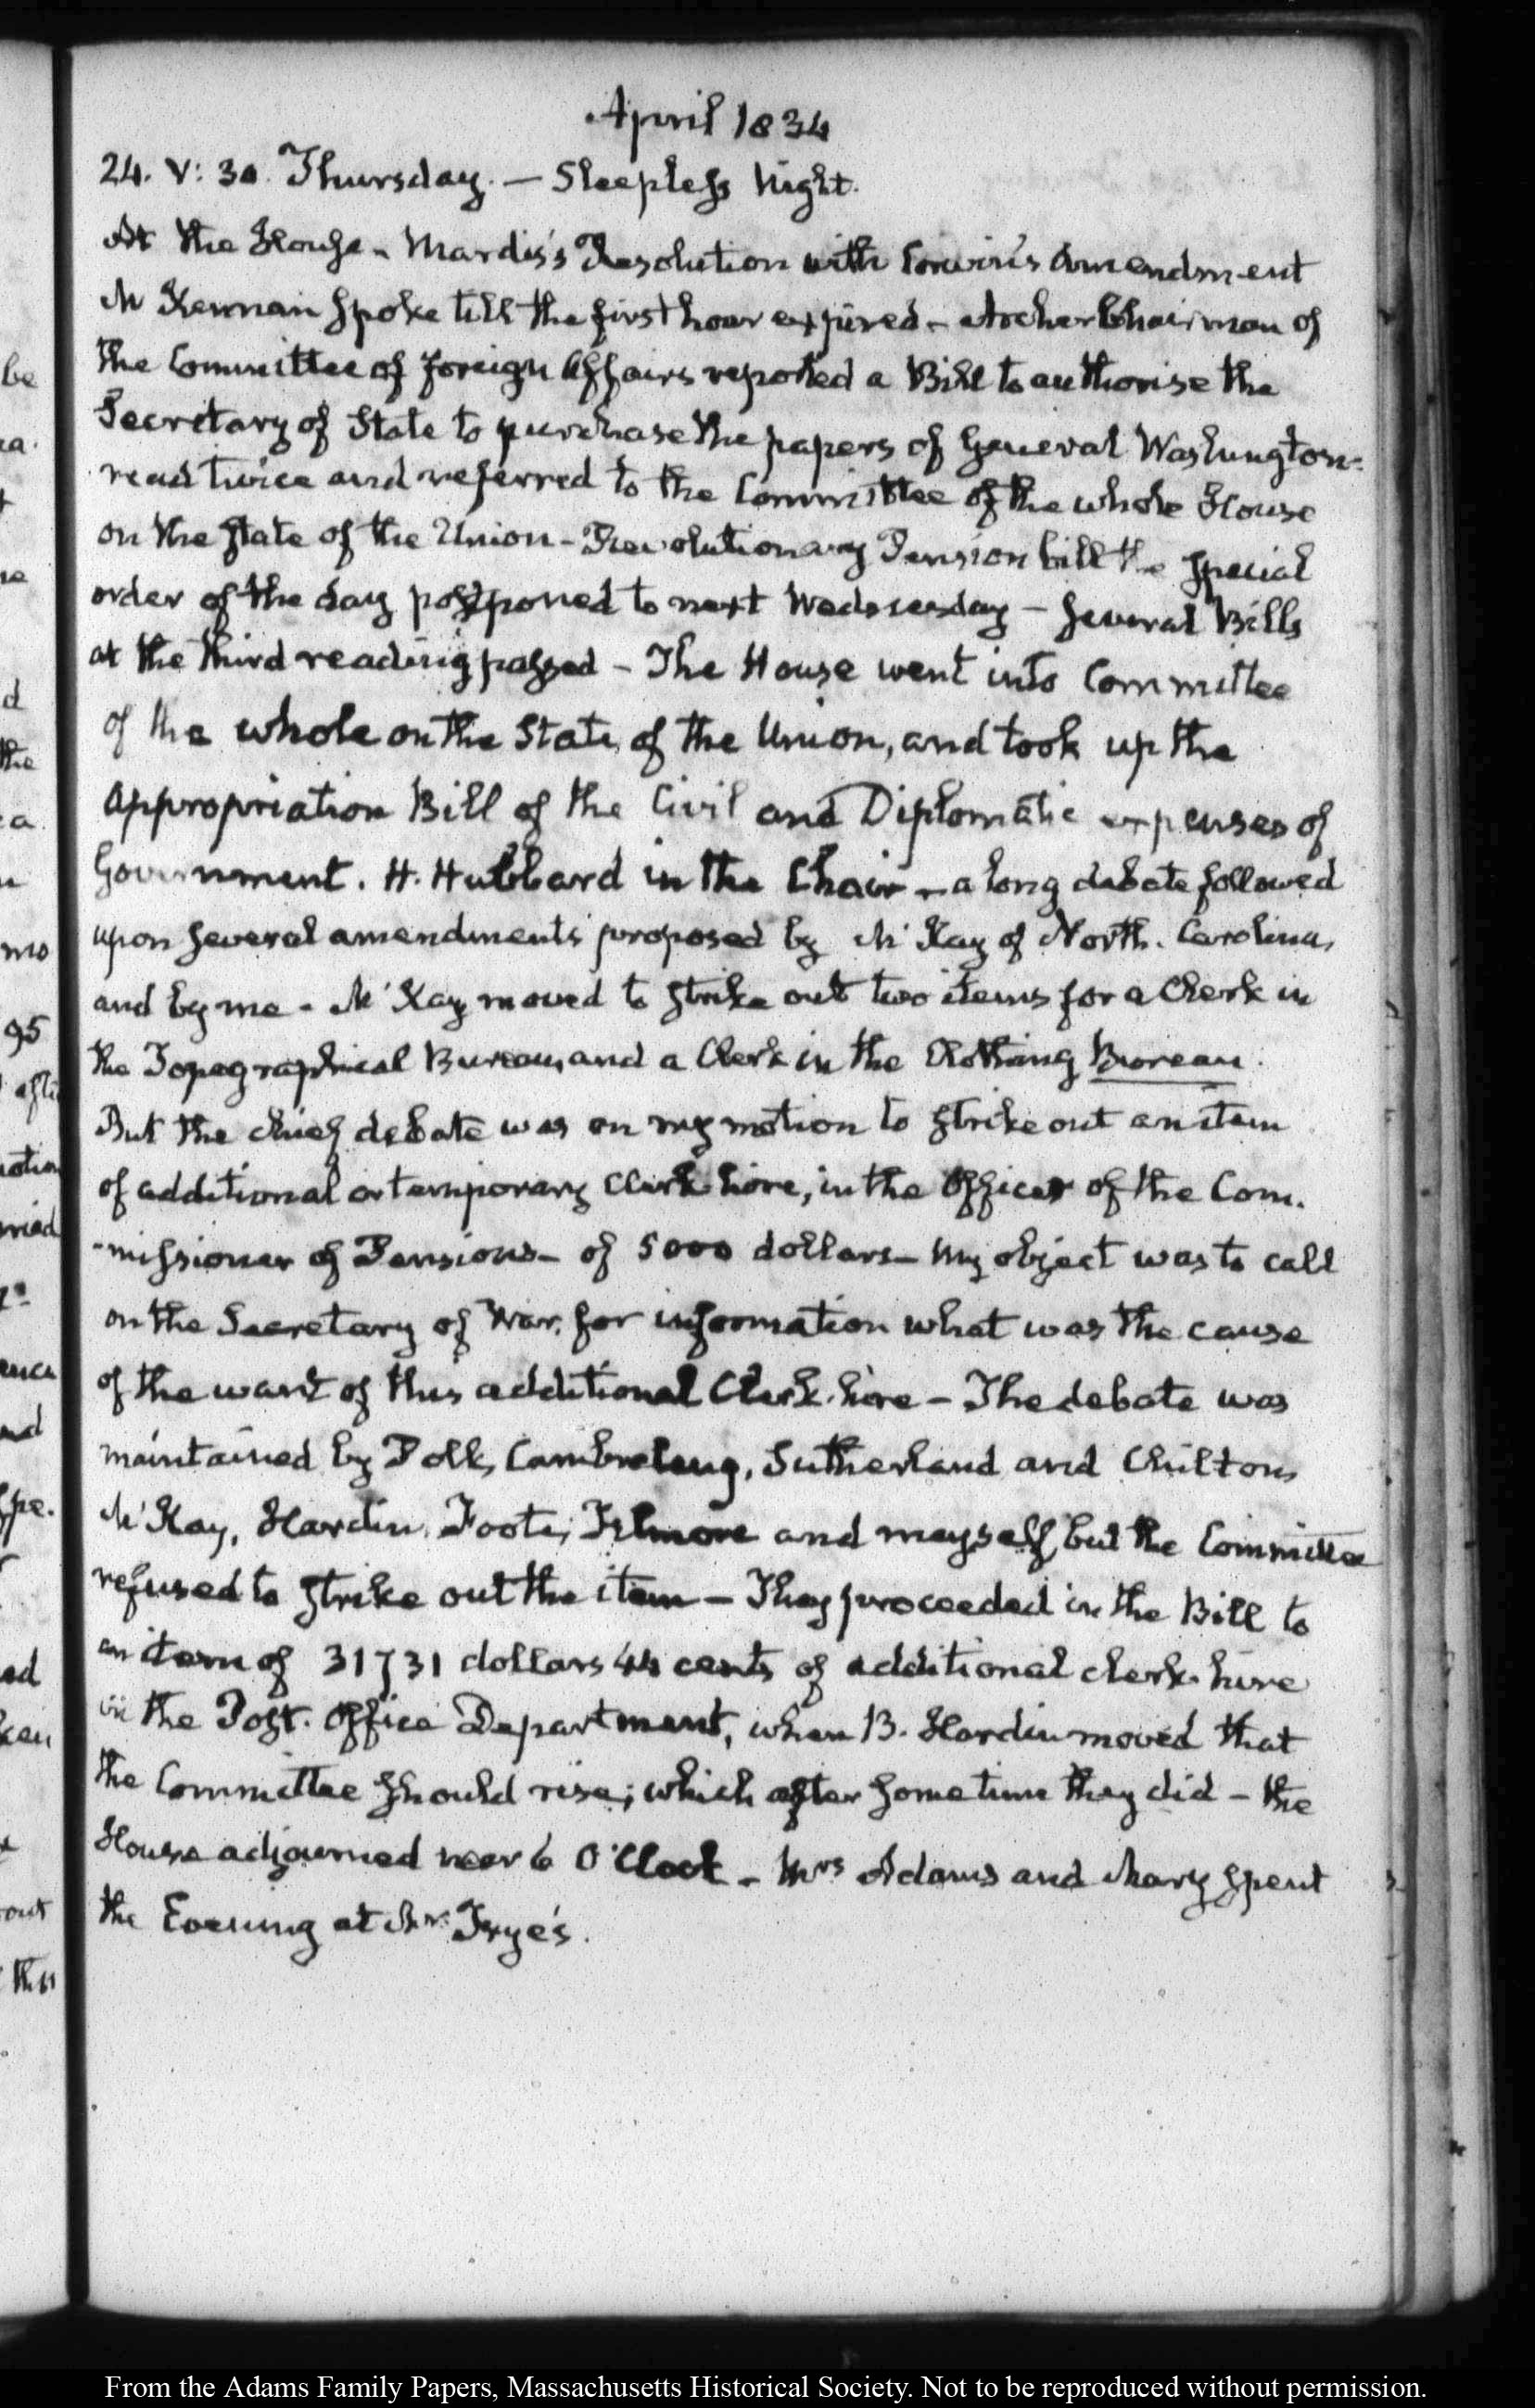 April 1834
24. V: 30. Thursday. — Sleepless Night.
At the House - Mardis's Resolution with Corwin's Amendment
McKennan spoke till the first hour expired - Archer Chairman of
the Committee of foreign Affairs reported a Bill to authorise the
Secretary of State to purchase the papers of General Washington-
read twice and referred to the Committee of the whole House
on the State of the Union - Revolutionary Pension bill the special
order of the day postponed to next Wednesday - several Bills
at the third reading passed - The House went into Committee
of the whole on the State of the Union, and took up the
Appropriation Bill of the Civil and Diplomatic expenses of
Government. H. Hubbard in the Chair - a long debate followed
upon several amendments proposed by McKay of North-Carolina,
and by me - McKay moved to strike out two items for a Clerk in
the Topographical Bureau, and a Clerk in the Clothing Bureau.
But the chief debate was on my motion to strike out an item
of additional or temporary Clerk hire, in the Office of the Com-
-missioner of Pensions - of 5000 dollars - My object was to call
on the Secretary of War, for information what was the cause
of the want of this additional Clerk-hire - The debate was
maintained by Polk, Cambreleng, Sutherland and Chilton,
McKay, Hardin, Foote, Filmore and mayself, but the Committee
refused to strike out the item - They proceeded in the Bill to
an item of 31731 dollars 44 cents of additional clerk-hire
in the Post-Office Department, when B. Hardin moved that
the Committee should rise; which after some time they did - the
House adjourned near 6 O'Clock - Mrs Adams and Mary spent
the Evening at Mr Frye's.
be
d
the
mo
95
nd
spe.
ed
out
From the Adams Family Papers, Massachusetts Historical Society. Not to be reproduced without permission.